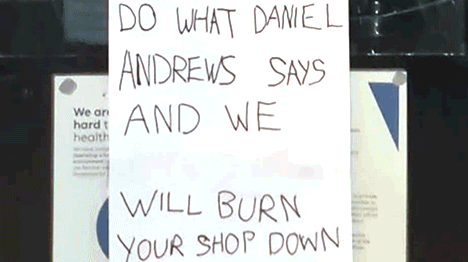 DO WHAT DANIEL
ANDREWS SAYS
AND WE
WILL BURN
YOUR SHOP DOWN
We are
hard t
health